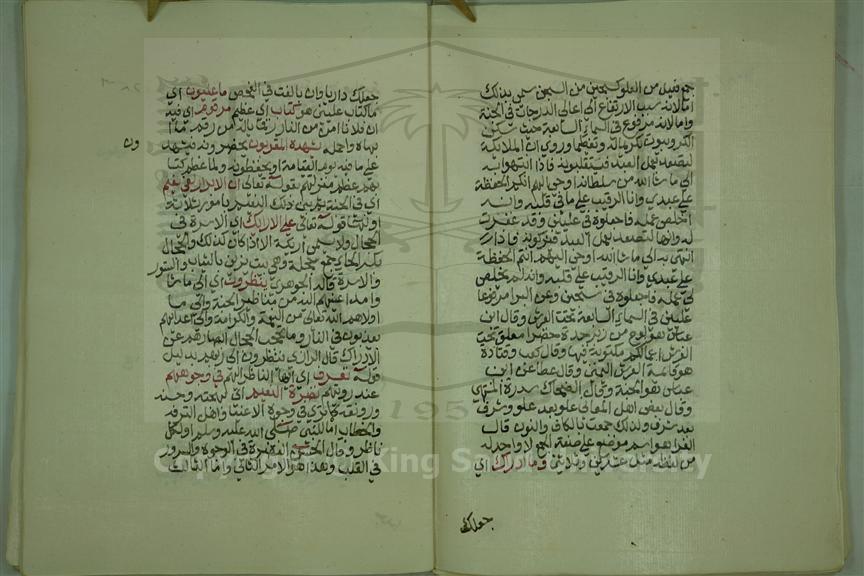 جمع فعيل من العلو كسجين من السجن سمي بذلك
اما لانه سبب الارتفاع الى اعالي الدرجات في الجنة
واما لانه مرفوع في السماء السابعة حيث يسكن
الكروبيون تكرمة له وتعظيما وروي ان الملائكة
لتصعد بعمل العبد فيستقلونه فاذا انتهوا به
الى ما شا الله من سلطانه اوحى اليهم انكم الحفظة
على عبدي وانا الرقيب على ما في قلبه وانه
اخلص عمله فاجعلوه في عليين وقد غفرت
له وانها لتصعد بعمل العبد فيزكونه فاذا
انتهى به الى ما شا الله اوحى اليهم انتم الحفظة
على عبدي وانا الرقيب على قلبه وانه لم يخلص
لي عمله فاجعلوه في سجين وعن البرا مرفوعا
عليين في السماء السابعة تحت العرش وقال ابن
عباس هو لوح من زبرجدة خضرا معلق تحت
العرش اعمالكم مكتوبة فيها وقال كعب وقتادة
هو قائمة العرش اليمنى وقال عطا عن ابن
عباس هو الجنة وقال الضحاك سدرة المنتهى
وقال بعض اهل المعاني علو بعد علو وشرف
بعد شرف ولذلك جمعت باليا والنون قال
الفرا هو اسم موضوع على صفة الجمع لا واحد له
من لفظه مثل عشرين وثلاثين وما ادراك اي
جعلك
جعلك داريا وان بالغت في الفحص ما عليون اي
ما كتاب عليين هو كتاب اي عظيم مرقوم اي فيه
ان فلانا امن من النار رقما
بهاه واجمله يشهده المقربون يحضرونه فيشهد
ون
على ما فيه يوم القيامة او يحفظونه ولما عظم كتا
بهم عظم منزلتهم بقوله تعالى ان الابرار لفي نعيم
اي في الجنة ثم بين ذلك النعيم بامور ثلاثة
اولها قوله تعالى على الارائك اي الاسرة في
الحجال ولا يسمى اريكة الا اذا كان كذلك والحجال
بكسر الحا جمع حجلة وهي بيت يزين بالثياب والستور
والاسرة قاله الجوهري ينظرون اي الى ما شا
وا مد اعينهم اليه من مناظر الجنة والى ما
اولاهم الله تعالى من النعمة والكرامة والى اعدائهم
يعذبون في النار وما تحجب الحجال ابصارهم عن
الادراك قال الرازي ينظرون الى ربهم بدليل
قوله تعرف اي ايها الناظر اليهم في وجوههم
عند رويتهم نضرة النعيم اي بهجته وحسنه
ورونقه كما ترى في وجوه الاغنيا واهل الترفه
والخطاب اما للنبي صلى الله عليه وسلم او لكل
ناظر وقال الحسن النضرة في الوجوه والسرور
في القلب وهذا هو الامر الثاني واما الثالث